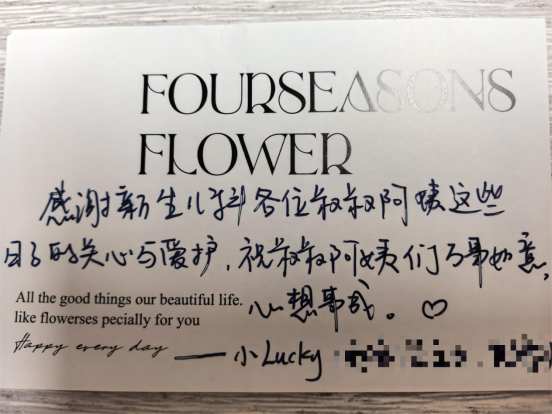 FOURSEASONS
FLOWER
感谢新生儿科各位叔叔阿姨这些
日子的关心与爱护,祝叔叔阿姨们万事如意,
心想事成。♡
All the good things our beautiful life.
like flowerses pecially for you
Happy every day
——小Lucky